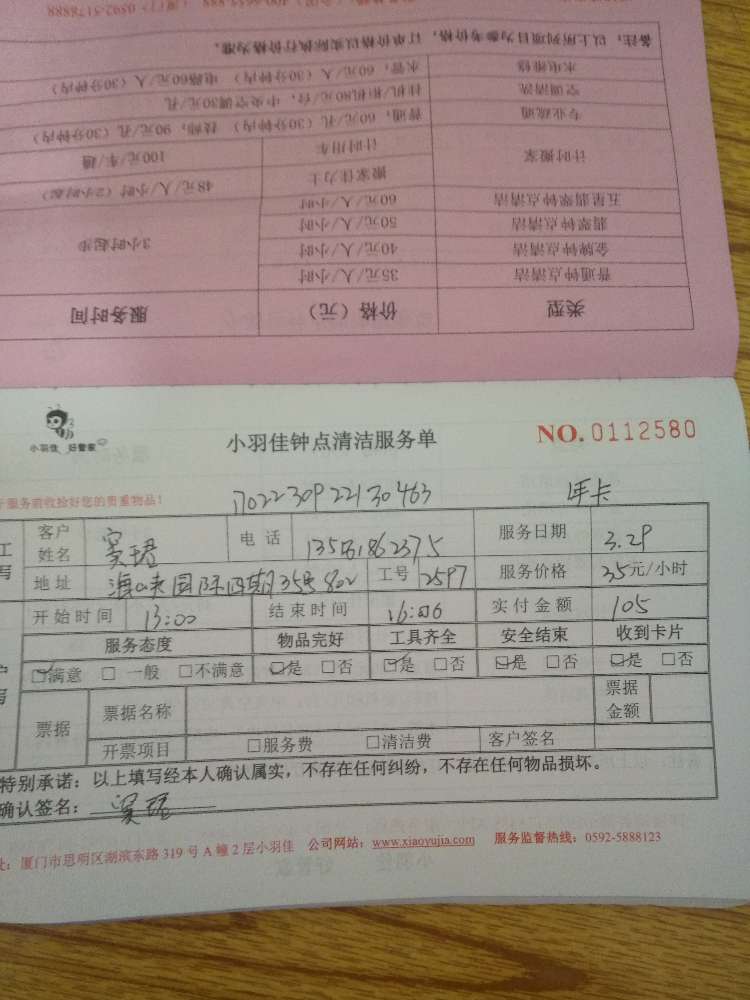 备注：以上所列项目为参考价格，订单价格以实际执行价格为准。
水电维修 水管，60元/人（30分钟内） 电路60元/人（30分钟内）
空调清洗 挂机/柜机80元/台，中央空调30元/孔
专业疏通 普通，60元/孔（30分钟内） 技师，90元/孔（30分钟内）
计时搬家 计时用车 100元/车/趟
搬家佳力士 48元/人/小时（2小时起）
五星翡翠钟点清洁 60元/人/小时
翡翠钟点清洁 50元/人/小时
金牌钟点清洁 40元/人/小时 3小时起步
普通钟点清洁 35元/人/小时
类型 价格（元） 服务时间
小羽佳 好管家
小羽佳钟点清洁服务单 NO.0112580
服务前收捡好您的贵重物品！
1702230922130463 年卡
客户姓名 电话 服务日期 3.29
地址 工号 2597 服务价格 35元/小时
开始时间 13:00 结束时间 16:06 实付金额 105
服务态度 物品完好 工具齐全 安全结束 收到卡片
☑满意 □一般 □不满意 ☑是 □否 ☑是 □否 ☑是 □否 ☑是 □否
票据 票据名称 票据金额
开票项目 □服务费 □清洁费 客户签名
特别承诺：以上填写经本人确认属实，不存在任何纠纷，不存在任何物品损坏。
确认签名：
址：厦门市思明区湖滨东路319号A幢2层小羽佳 公司网站：www.xiaoyujia.com 服务监督热线：0592-5888123